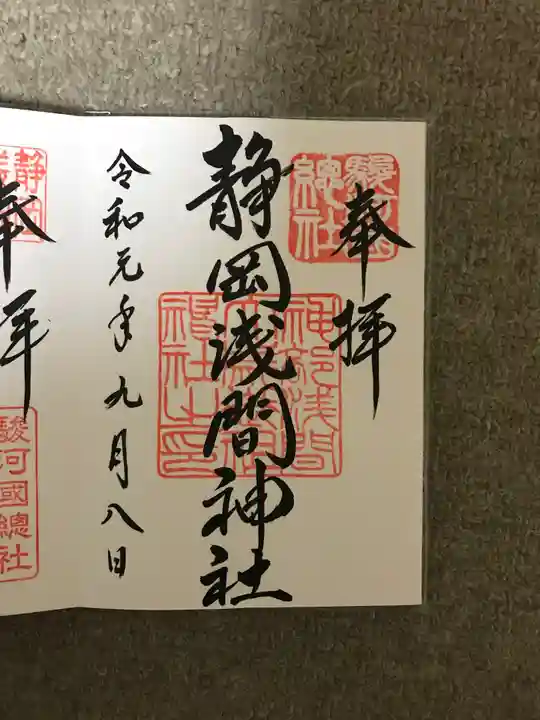 奉拝
駿河國
總社
静岡浅間神社
神部浅間
令和元年九月八日
奉拝
駿河國總社
静